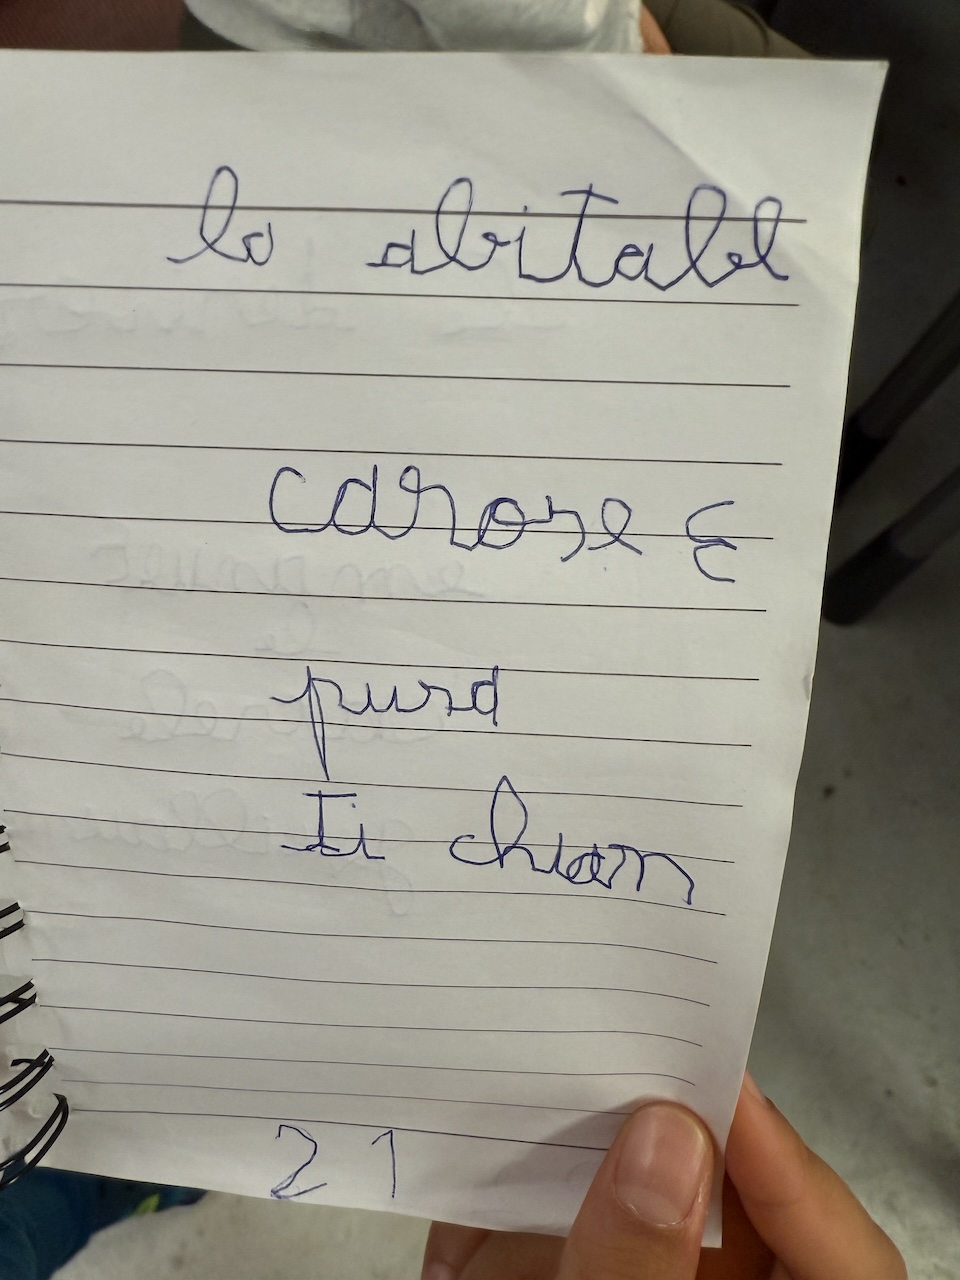 lo abitabl
carose E
pura
Ti chiam
21